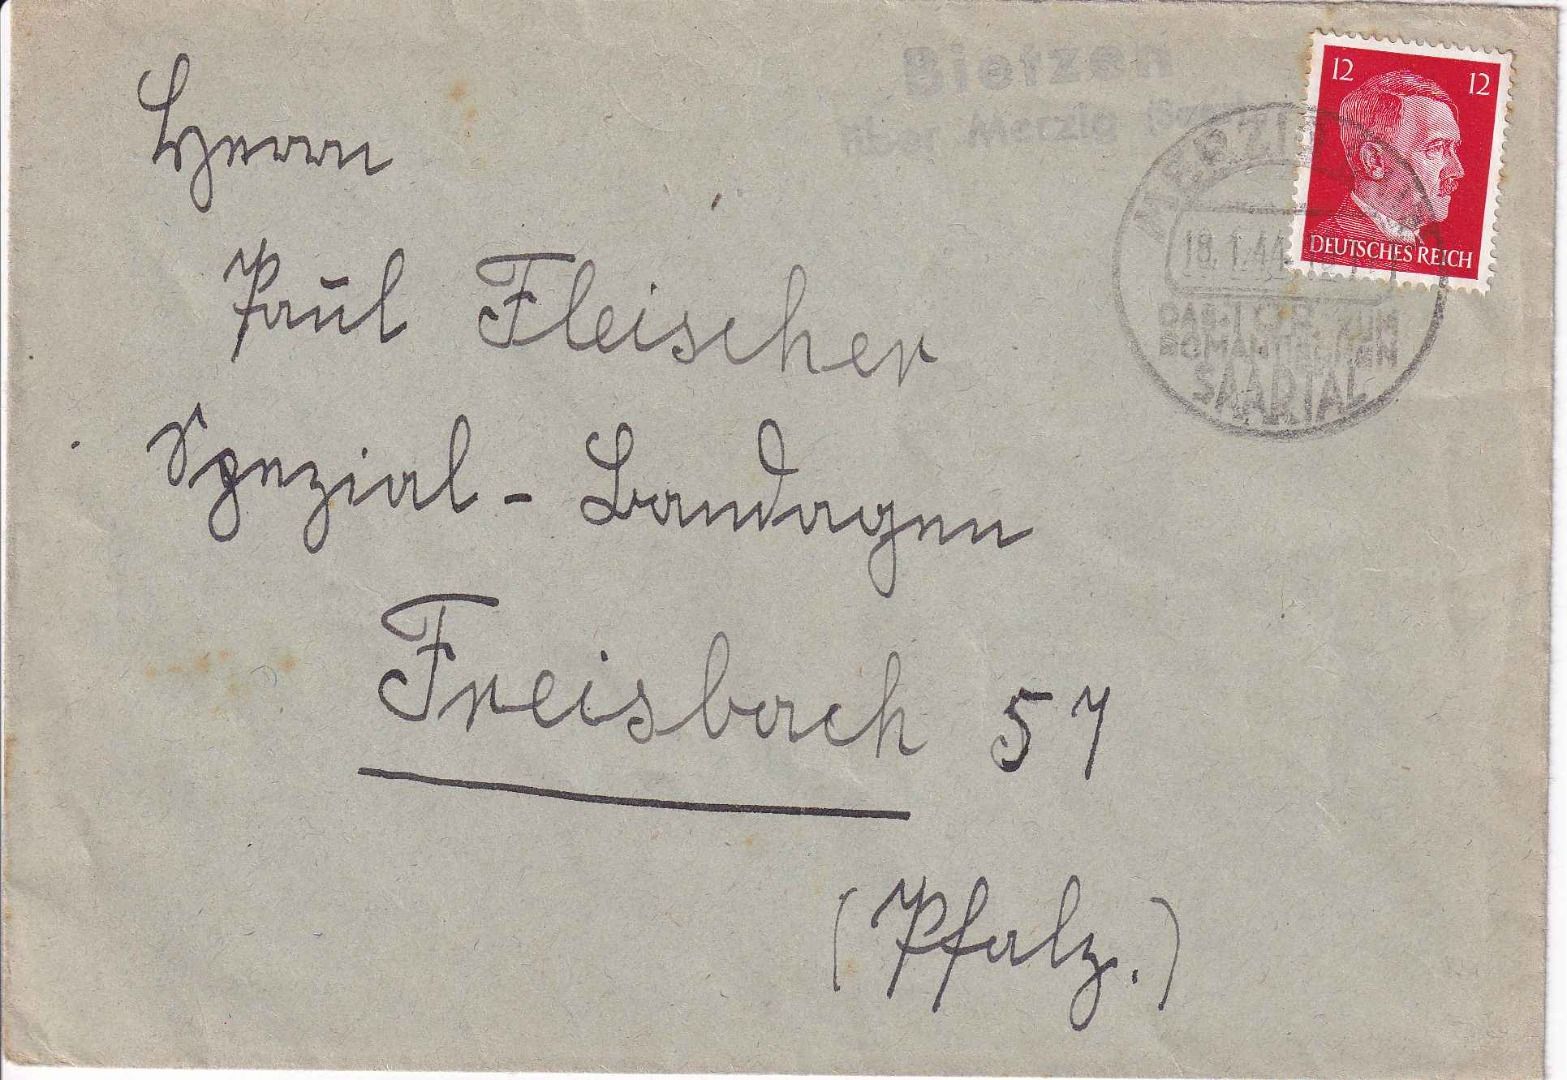 Bietzen
über Merzig (Saar)
12 12
DEUTSCHES REICH
MERZIG
18.1.44
DAS TOR ZUM
ROMANTISCHEN
SAARTAL
Herrn
Paul Fleischer
Spezial - Bandagen
Freisbach 57
(Pfalz.)